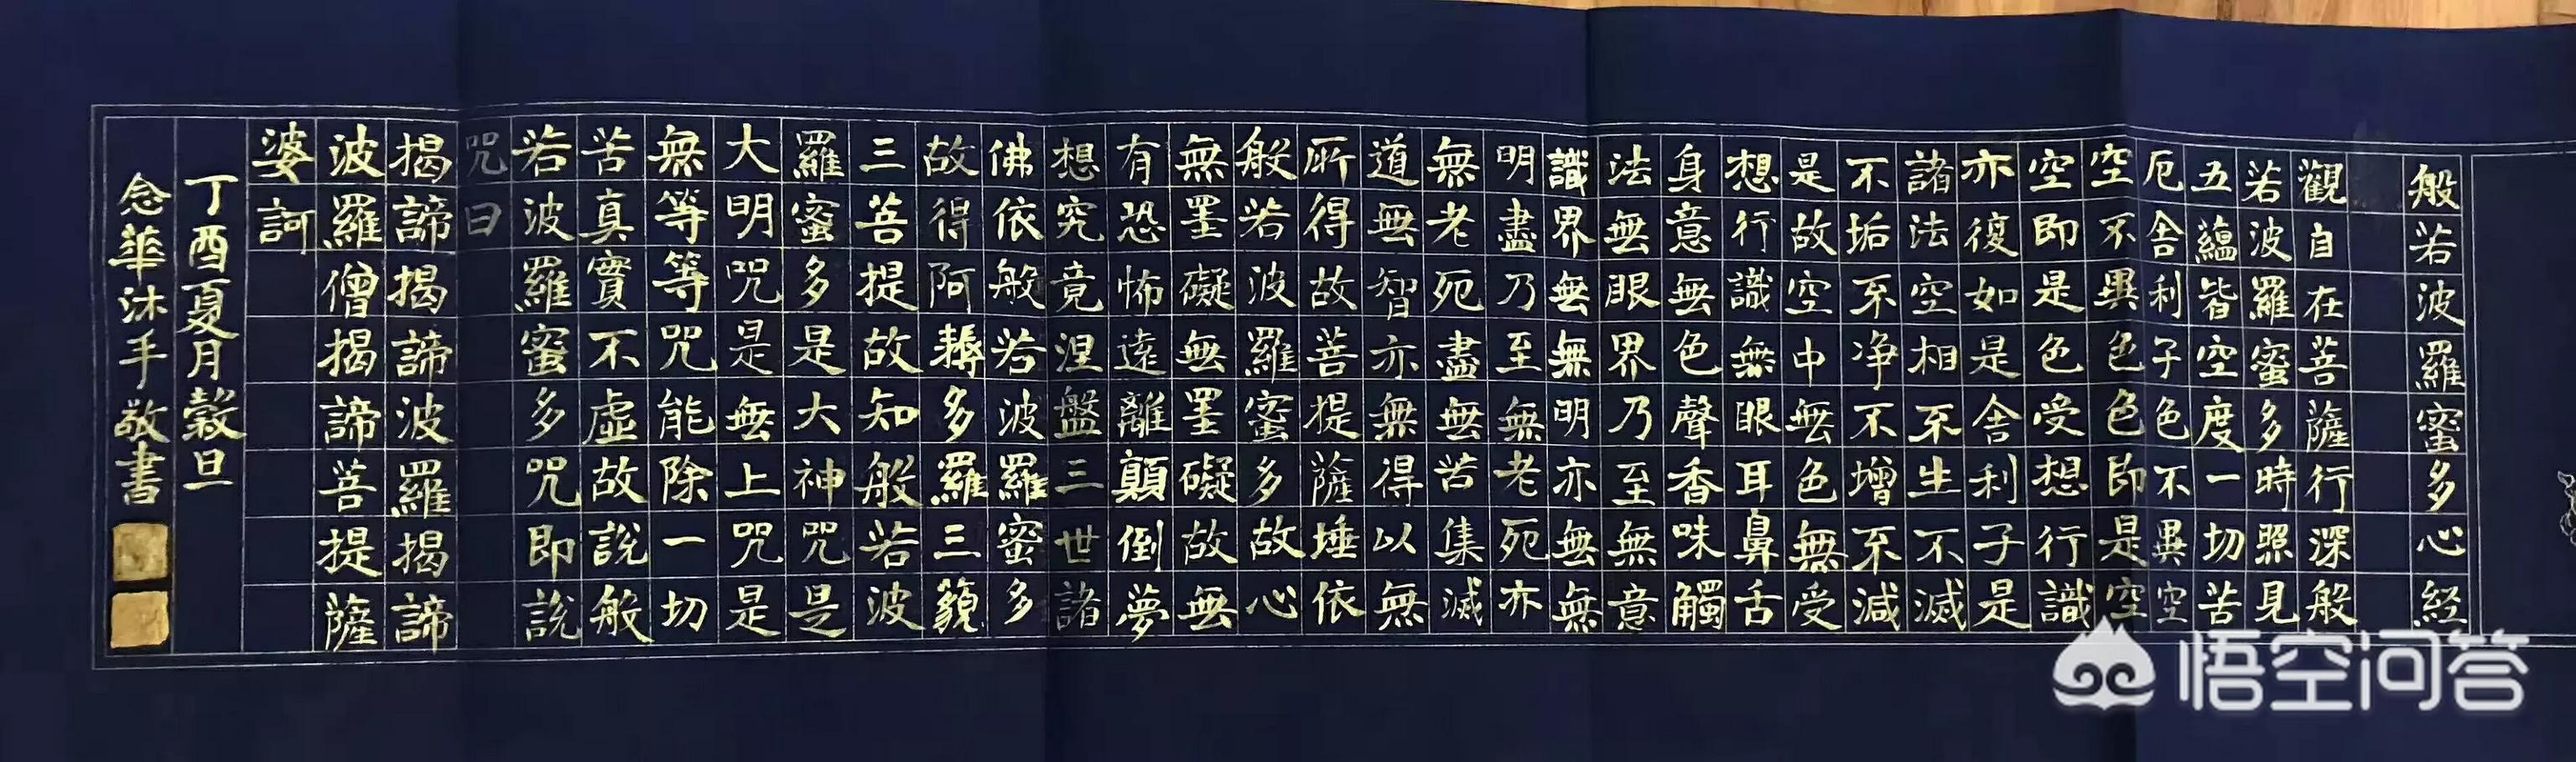 般若波羅蜜多心経
觀自在菩薩行深般
若波羅蜜多時照見
五蘊皆空度一切苦
厄舍利子色不異空
空不異色色即是空
空即是色受想行識
亦復如是舍利子是
諸法空相不生不滅
不垢不净不增不減
是故空中無色無受
想行識無眼耳鼻舌
身意無色聲香味觸
法無眼界乃至無意
識界無無明亦無無
明盡乃至無老死亦
無老死盡無苦集滅
道無智亦無得以無
所得故菩提薩埵依
般若波羅蜜多故心
無罣礙無罣礙故無
有恐怖遠離顛倒夢
想究竟涅盤三世諸
佛依般若波羅蜜多
故得阿耨多羅三藐
三菩提故知般若波
羅蜜多是大神咒是
大明咒是無上咒是
無等等咒能除一切
苦真實不虛故說般
若波羅蜜多咒即說
咒曰
揭諦揭諦波羅揭諦
波羅僧揭諦菩提薩
婆訶
丁酉夏月榖旦
念華沐手敬書
悟空问答